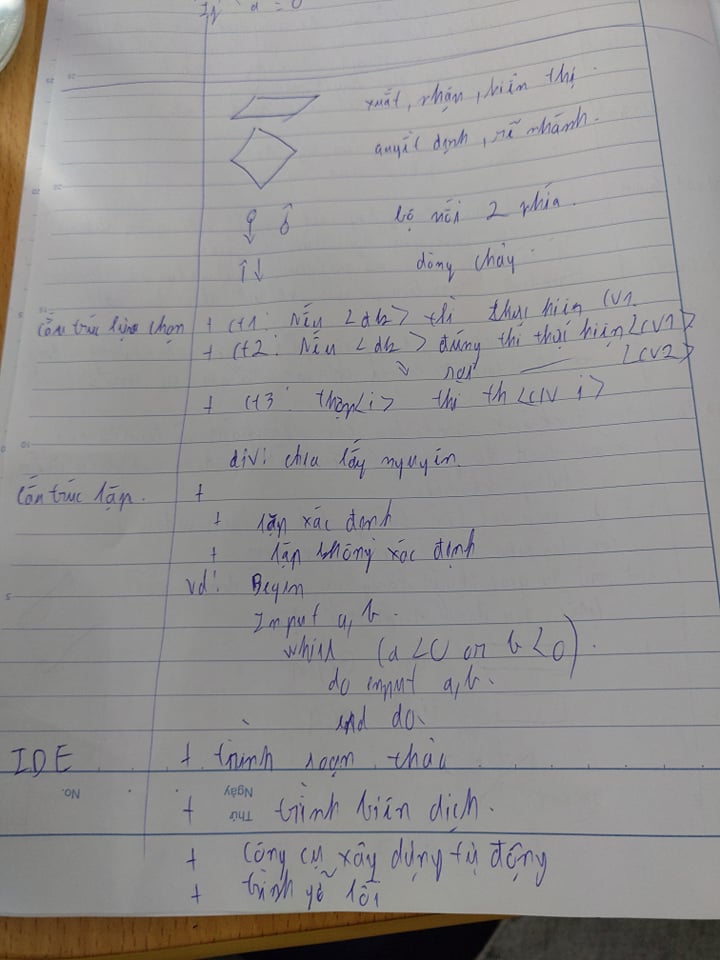 If a = 0
xuất, nhận, hiển thị.
quyết định, rẽ nhánh.
bộ nối 2 phía.
dòng chảy.
Cấu trúc lựa chọn + Ct1: Nếu <đk> thì thực hiện CV1
+ Ct2: Nếu <đk> đúng thì thực hiện <CV1>
<CV2>
+ Ct3: <i> thì th <CV i>
div: chia lấy nguyên.
Cấu trúc lặp. +
+ lặp xác định
+ lặp không xác định
vd: Begin
Input a, b.
while (a <0 or b <0).
do input a, b.
end do.
IDE + trình soạn thảo
No. Thứ Ngày
+ trình biên dịch.
+ Công cụ xây dựng tự động
+ trình gỡ lỗi